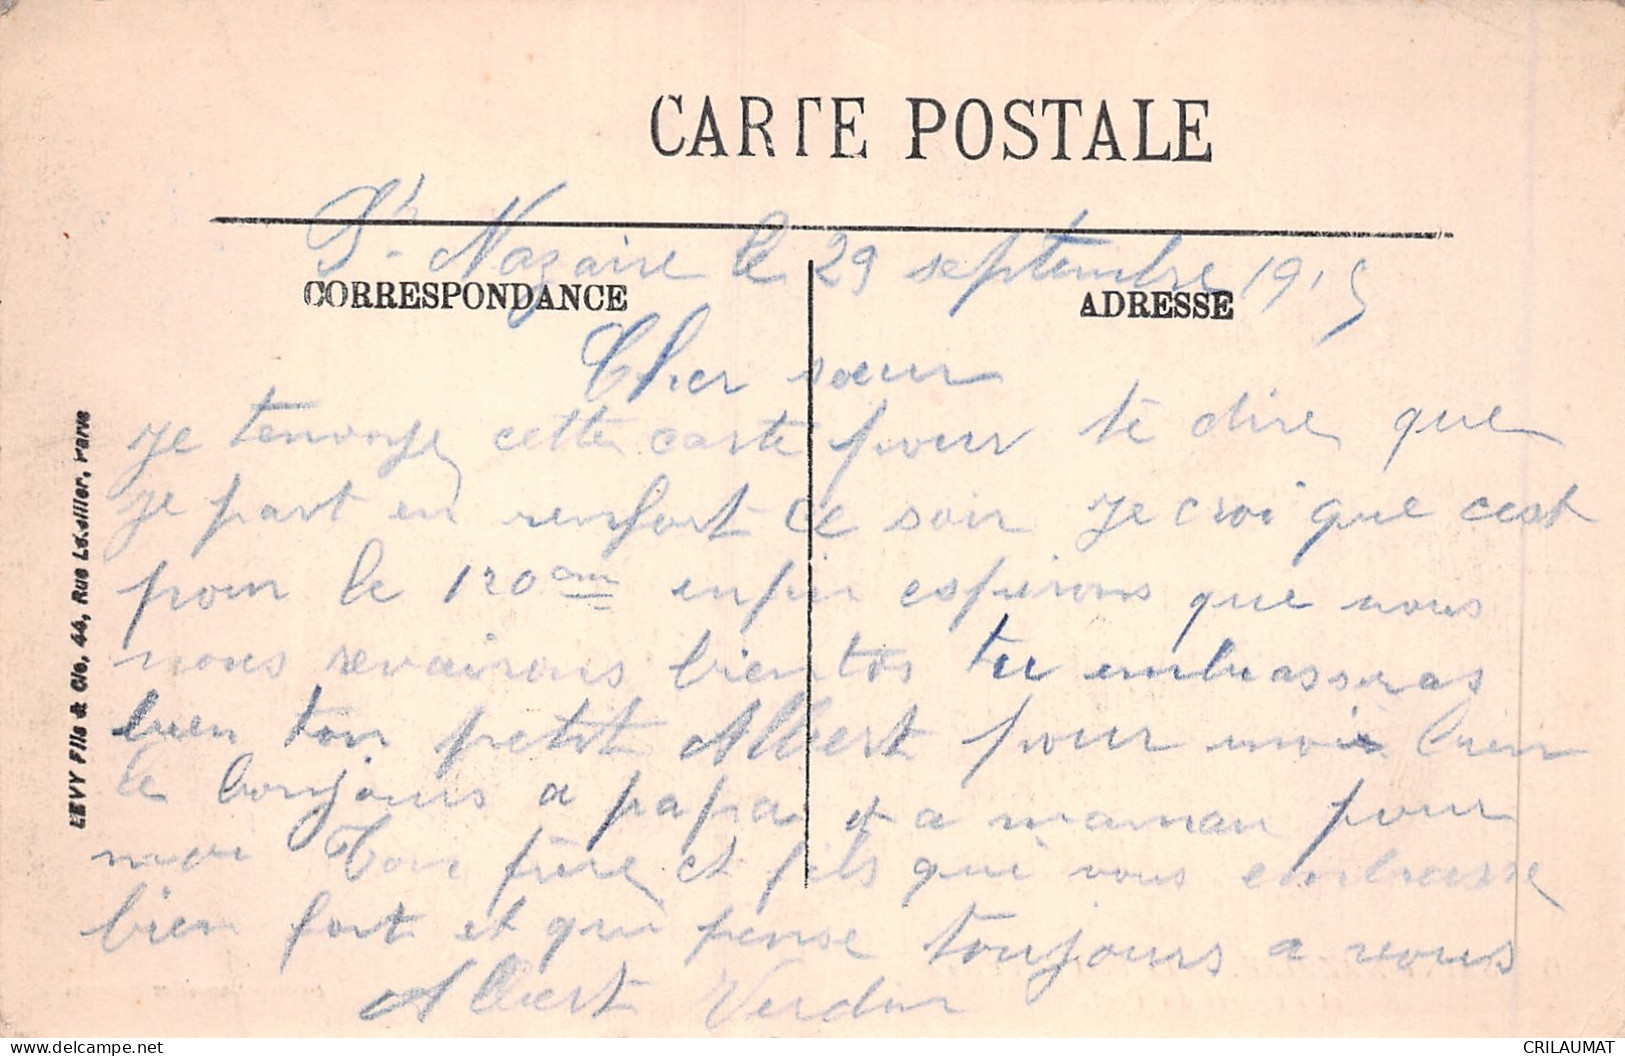 CARTE POSTALE
St. Nazaire le 29 septembre 1915
CORRESPONDANCE
ADRESSE
Cher sœur
je tenvoye cette carte pour te dire que
je part en renfort ce soir je croi que cest
pour le 120 em enfin espirons que nous
nous revairons bientos tu embrasseras
bien ton petit Albert pour moi bien
le bonjours a papa et a maman pour
moi Ton frère et fils qui vous embrasse
bien fort et qui pense toujours a vous
Albert Verdon
LEVY Fils & Cie, 44, Rue Letellier, Paris
CRILAUMAT